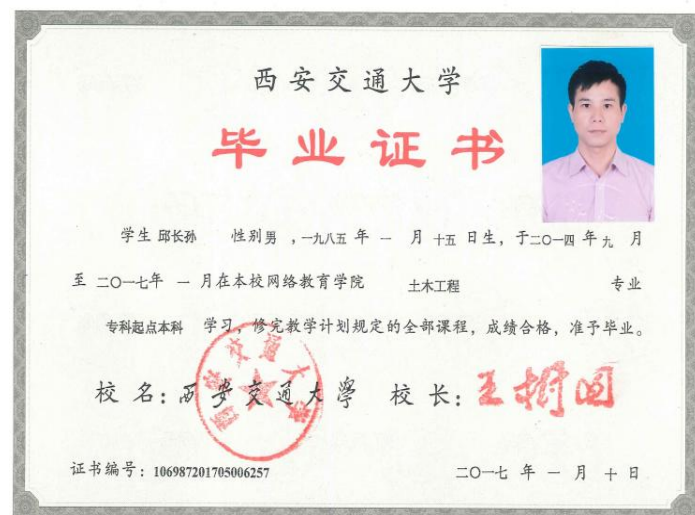 西安交通大学
毕业证书
学生 邱长孙 性别 男 ，一九八五 年 一 月 十五 日生，于二〇一四 年 九 月
至 二〇一七 年 一 月在本校网络教育学院 土木工程 专业
专科起点本科 学习，修完教学计划规定的全部课程，成绩合格，准予毕业。
校 名：西安交通大学 校 长：王树国
西安交通大学
证书编号：106987201705006257
二〇一七 年 一 月 十 日